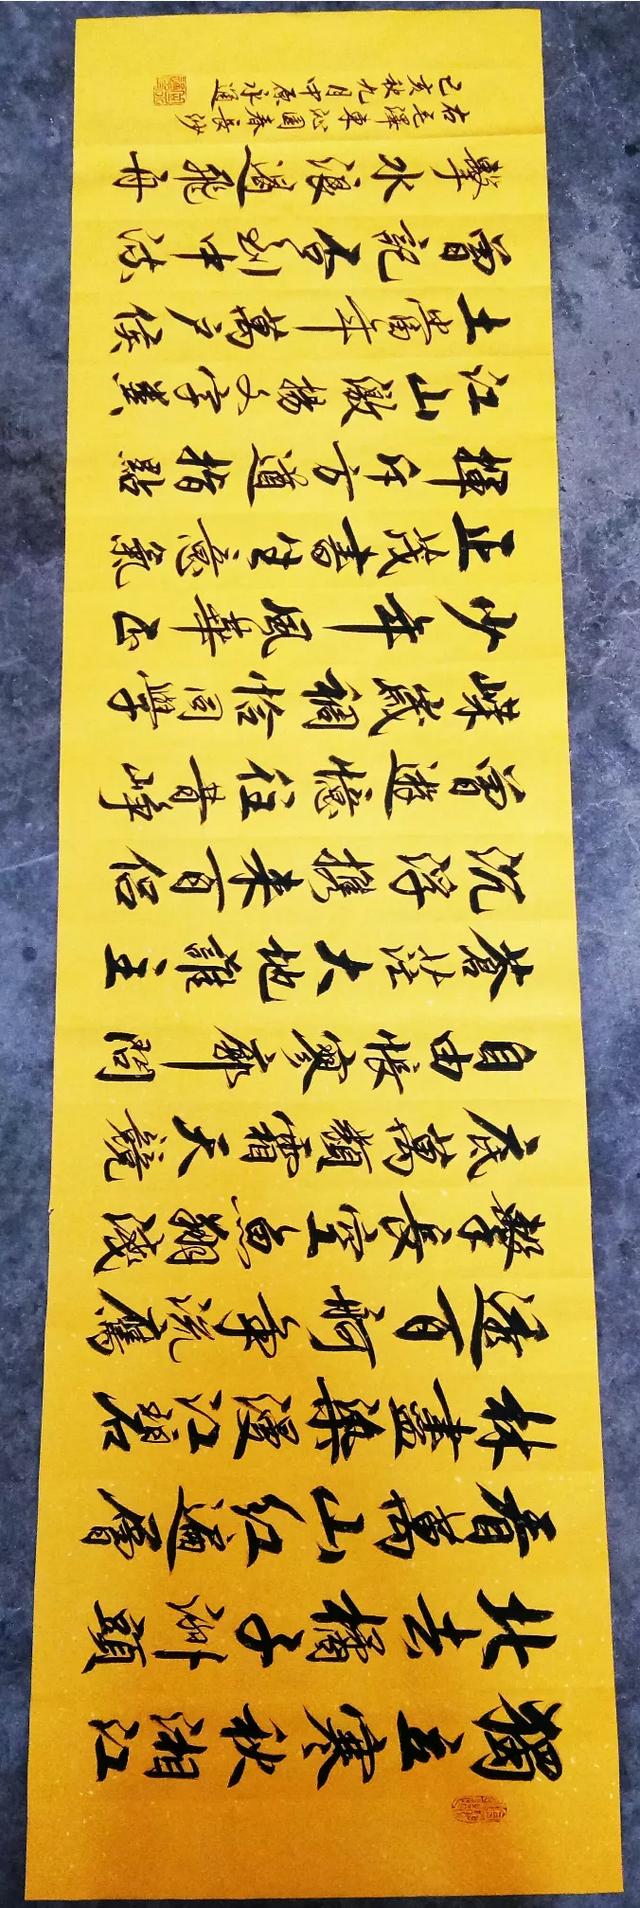 獨立寒秋湘江
北去橘子洲頭
看萬山紅遍層
林盡染漫江碧
透百舸爭流鷹
擊長空魚翔淺
底萬類霜天競
自由悵寥廓問
蒼茫大地誰主
沉浮攜來百侶
曾遊憶往昔崢
嶸歲稠恰同學
少年風華正
正茂書生意氣
揮斥方遒指點
江山激揚文字糞
土當年萬戶侯
曾記否到中流
擊水浪遏飛舟
右毛澤東沁園春長沙
己亥秋九月中原永通